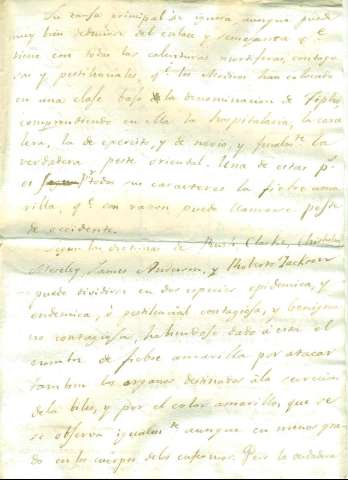 Su causa principal se ignora, aunque puede
muy bien deducirse del enlace y semejanza qe.
tiene con todas las calenturas mortiferas, contagio
sas y pestilenciales, qe. los Medicos han colocado
en una clase bajo la denominacion de Typhos,
comprendiendo en ella la hospitalaria, la carce
lera, la de exercito, y de navio, y finalmte. la
verdadera peste oriental. Una de estas ps.
es pr. todos sus caracteres la fiebre ama
rilla, qe. con razon puede llamarse peste
de occidente.
Segun las doctrinas de Rush, Clarke, Christobal
Moseley, James Anderson, y Roberto Jackson
puede dividirse en dos especies epidemica, y
endemica, ó pestilencial contagiosa, y benigna
no contagiosa, habiendose dado á esta el
nombre de fiebre amarilla por atacar
tambien los organos destinados á la secrecion
de la bilis, y por el color amarillo, que se
se observa igualmte. aunque en menos gra
do en los cuerpos de los enfermos. Pero la verdadera